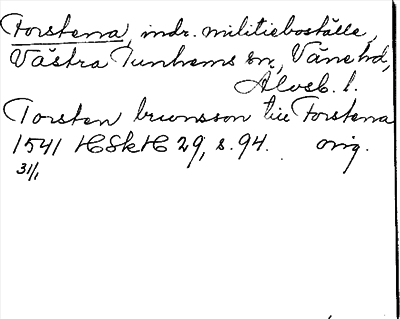 Forstena, indr. militieboställe,
Västra Tunhems sn, Väne hd,
Älvsb. l.
Torsten brunsson till Forstena
1541 HSkH 29, s. 94. orig.
31/1